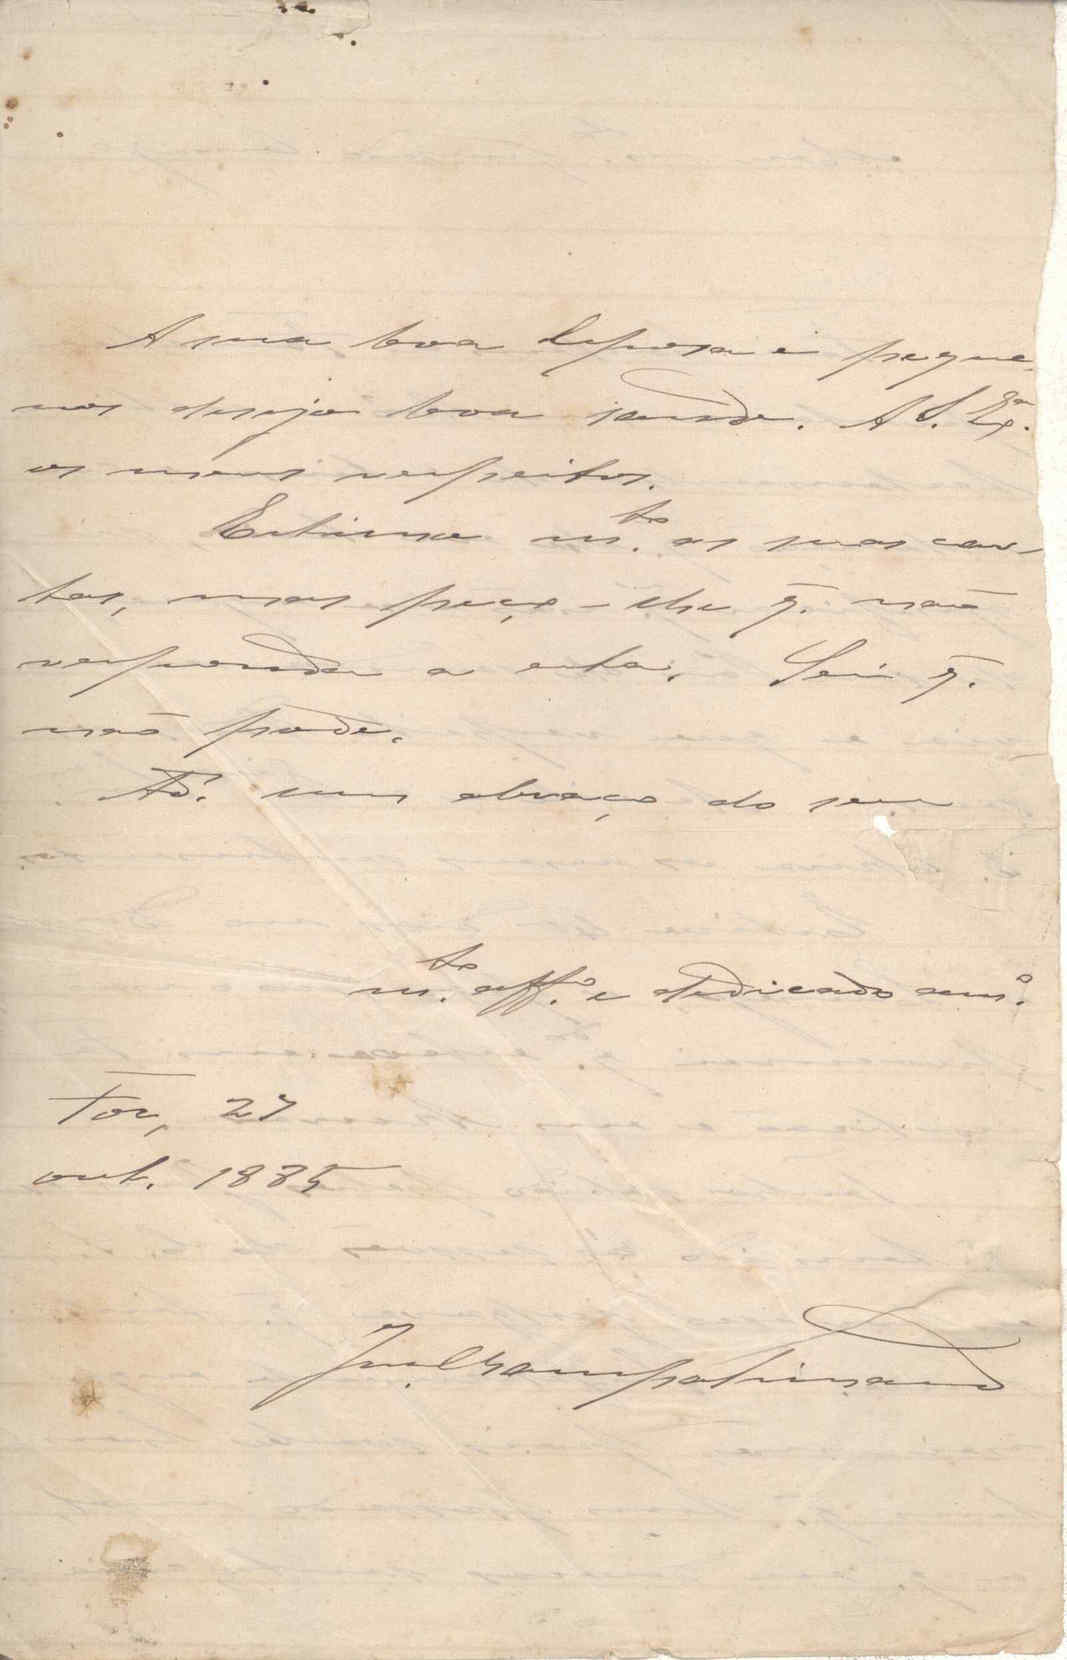 A sua boa Esposa e peque-
nos desejo boa saude. A S. Exª.
os meus respeitos.
Estimo m.to as suas car-
tas, mas peço-lhe q. não
responda a esta. Sei q.
não pode.
Ad.s um abraço do seu
m.to aff.o e dedicado am.o
For, 27
out. 1885